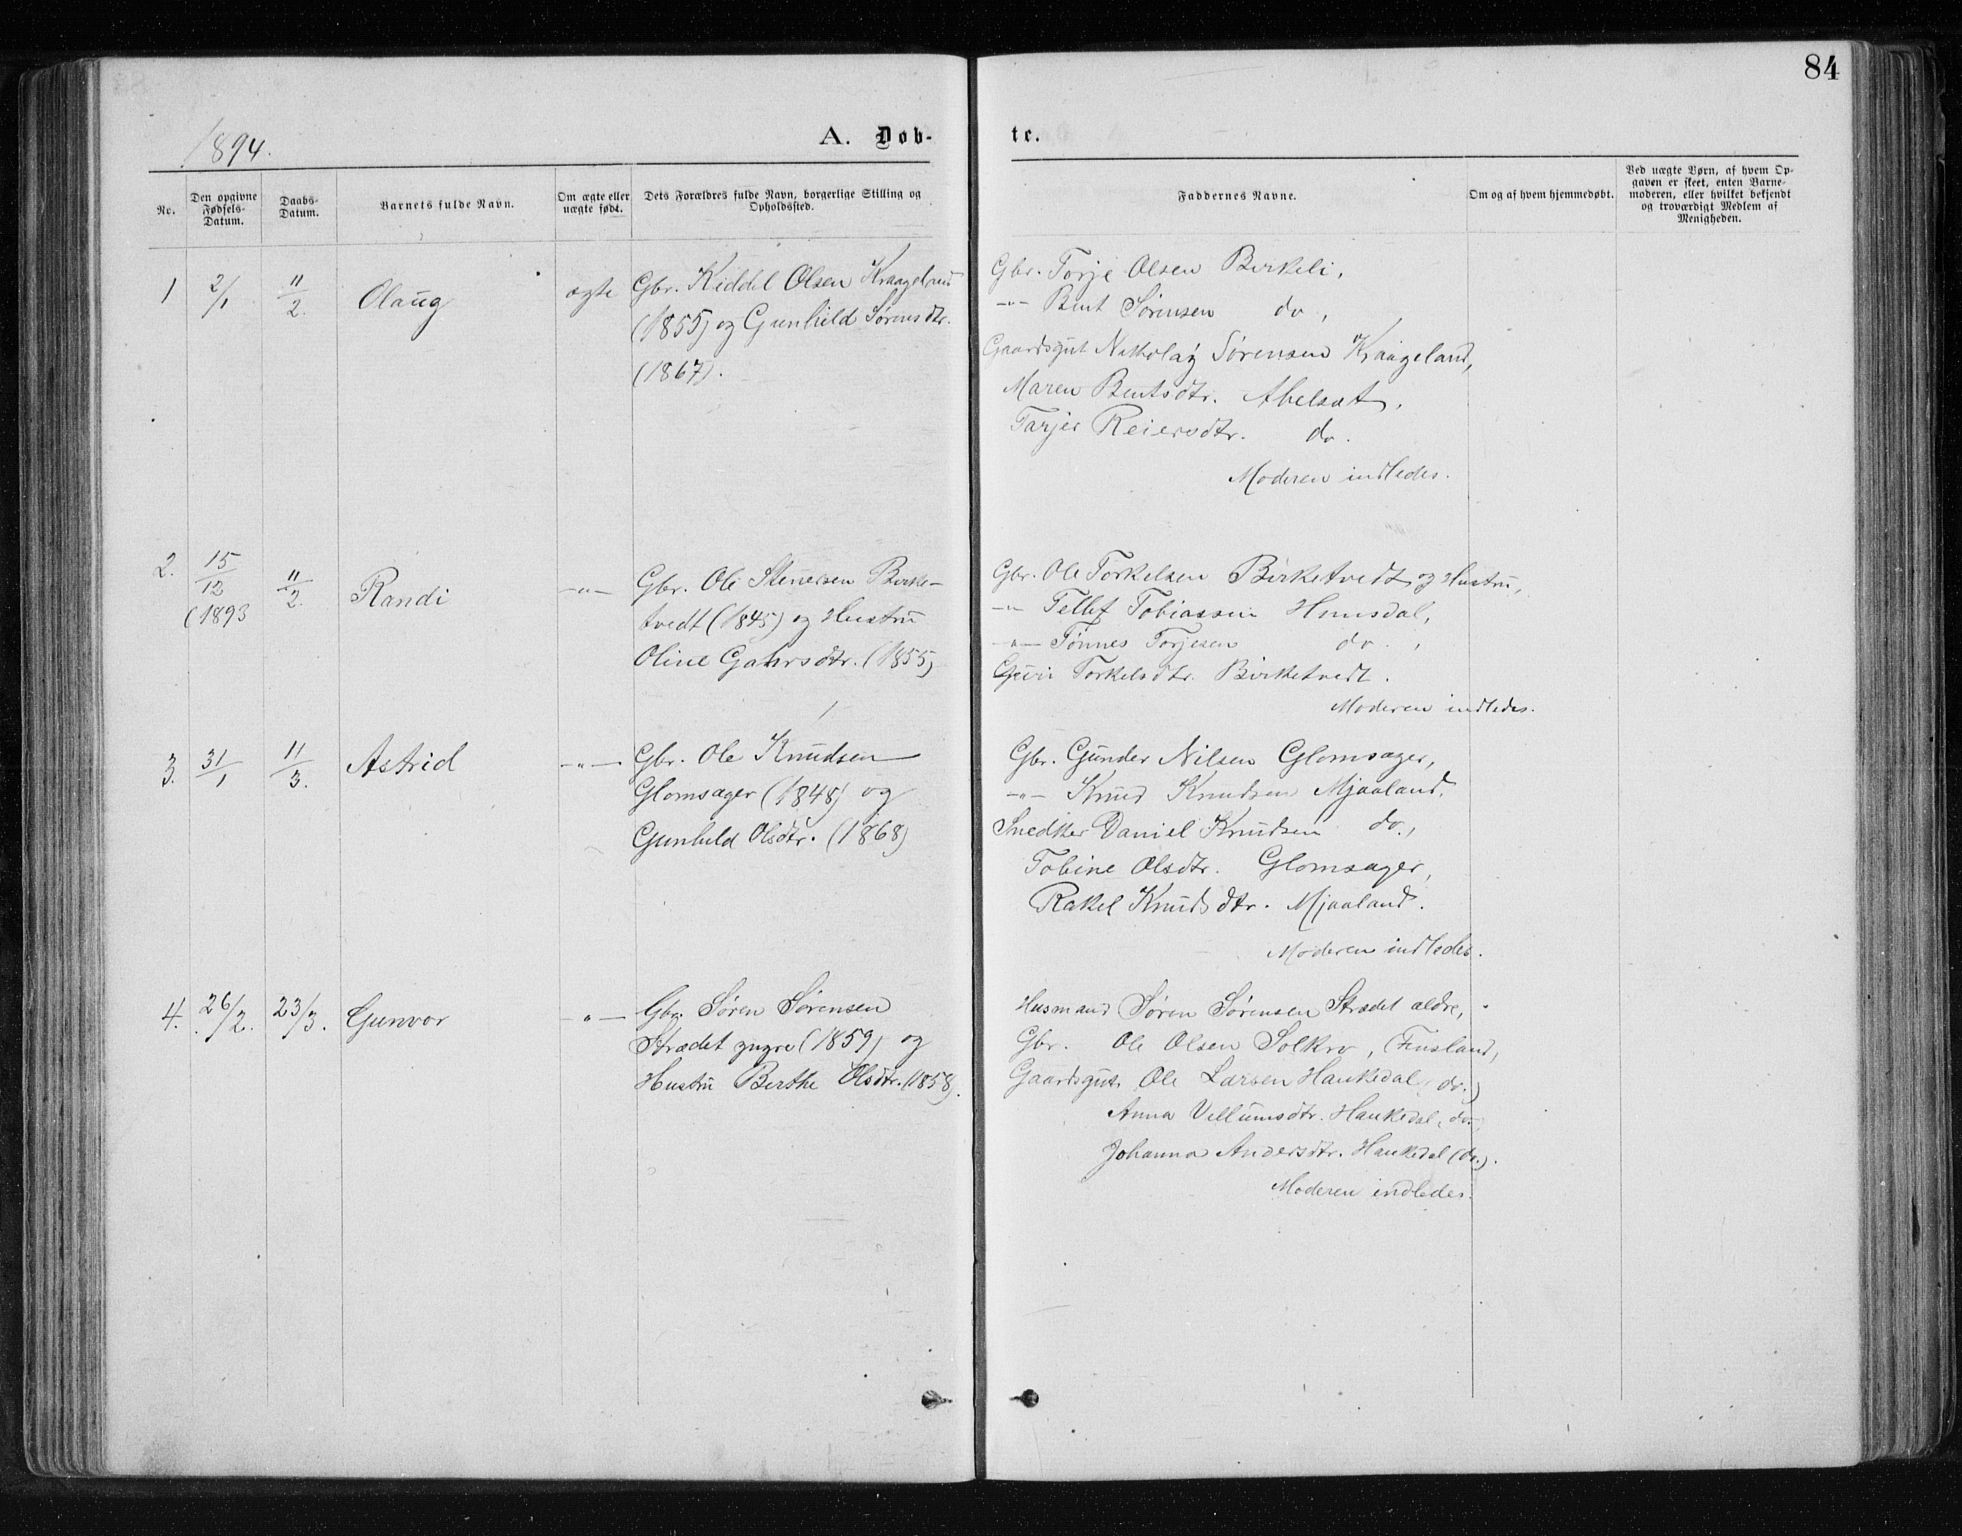 84
1894.
A. Døb-
te.
No.
Den opgivne Fødsels-Datum.
Daabs-Datum.
Barnets fulde Navn.
Om ægte eller uægte født.
Dets Forældres fulde Navn, borgerlige Stilling og Opholdssted.
Faddernes Navne.
Om og af hvem hjemmedøbt.
Ved uægte Børn, af hvem Op-
gaven er skeet, enten Barne-
moderen, eller hvilket bekjendt
og troværdigt Medlem af
Menigheden.
1 2/1 11/2. Olaug ægte Gbr. Kiddel Olsen
(1855) og Gunhild Sørensdtr.
(1867).
Gbr. Torje Olsen Birkeli,
-"- Bent Sørensen do,
Gaardsgut Nikolay Sørensen Kraageland,
Maren Bentsdtr. Abelsæt,
Tarjer Reiersdtr. do.
Moderen indledes.
2. 15/12 (1893 11/2. Randi -"- Gbr. Ole Stenersen Birke-
tvedt (1845) og Hustru
Oline Gahrsdtr. (1855)
Gbr. Ole Torkelsen Birketvedt og Hustru,
-"- Tellef Tobiassen Homsdal,
-"- Tønnes Torjesen do.,
Guri Torkelsdtr. Birketvedt.
Moderen indledes.
3. 31/1 11/3. Astrid -"- Gbr. Ole Knudsen
Glomsager (1848) og
Gunhild Olsdtr. (1868)
Gbr. Gunder Nilsen Glomsager,
-"- Knud Knudsen Mjaaland,
Snedker Daniel Knudsen do.,
Tobine Olsdtr. Glomsager,
Rakel Knudsdtr. Mjaaland.
Moderen indledes.
4. 26/2. 23/3. Gunvor -"- Gbr. Søren Sørensen
Strædet yngre (1859) og
Hustru Berthe Olsdtr. (1858).
Husmand Søren Sørensen Strædet ældre,
Gbr. Ole Olsen Solkro, (Finsland,
Gaardsgut Ole Larsen Haukedal (do.)
Anna Villumsdtr. Haukedal, do.
Johanna Andersdtr. Haukedal (do.).
Moderen indledes.